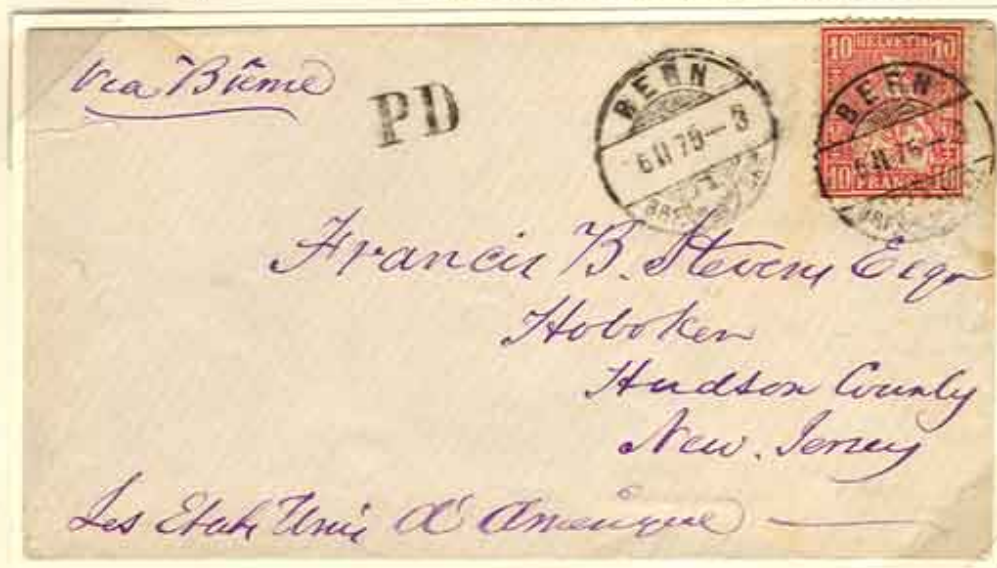 Via Brême
PD
BERN
6 II 75 – 3
10 HELVETIA 10
BERN
6 II 75 –
10 FRANCO
Francis B. Stevens Esqr
Hoboken
Hudson County
New. Jersey
Les Etats Unis d'Amérique